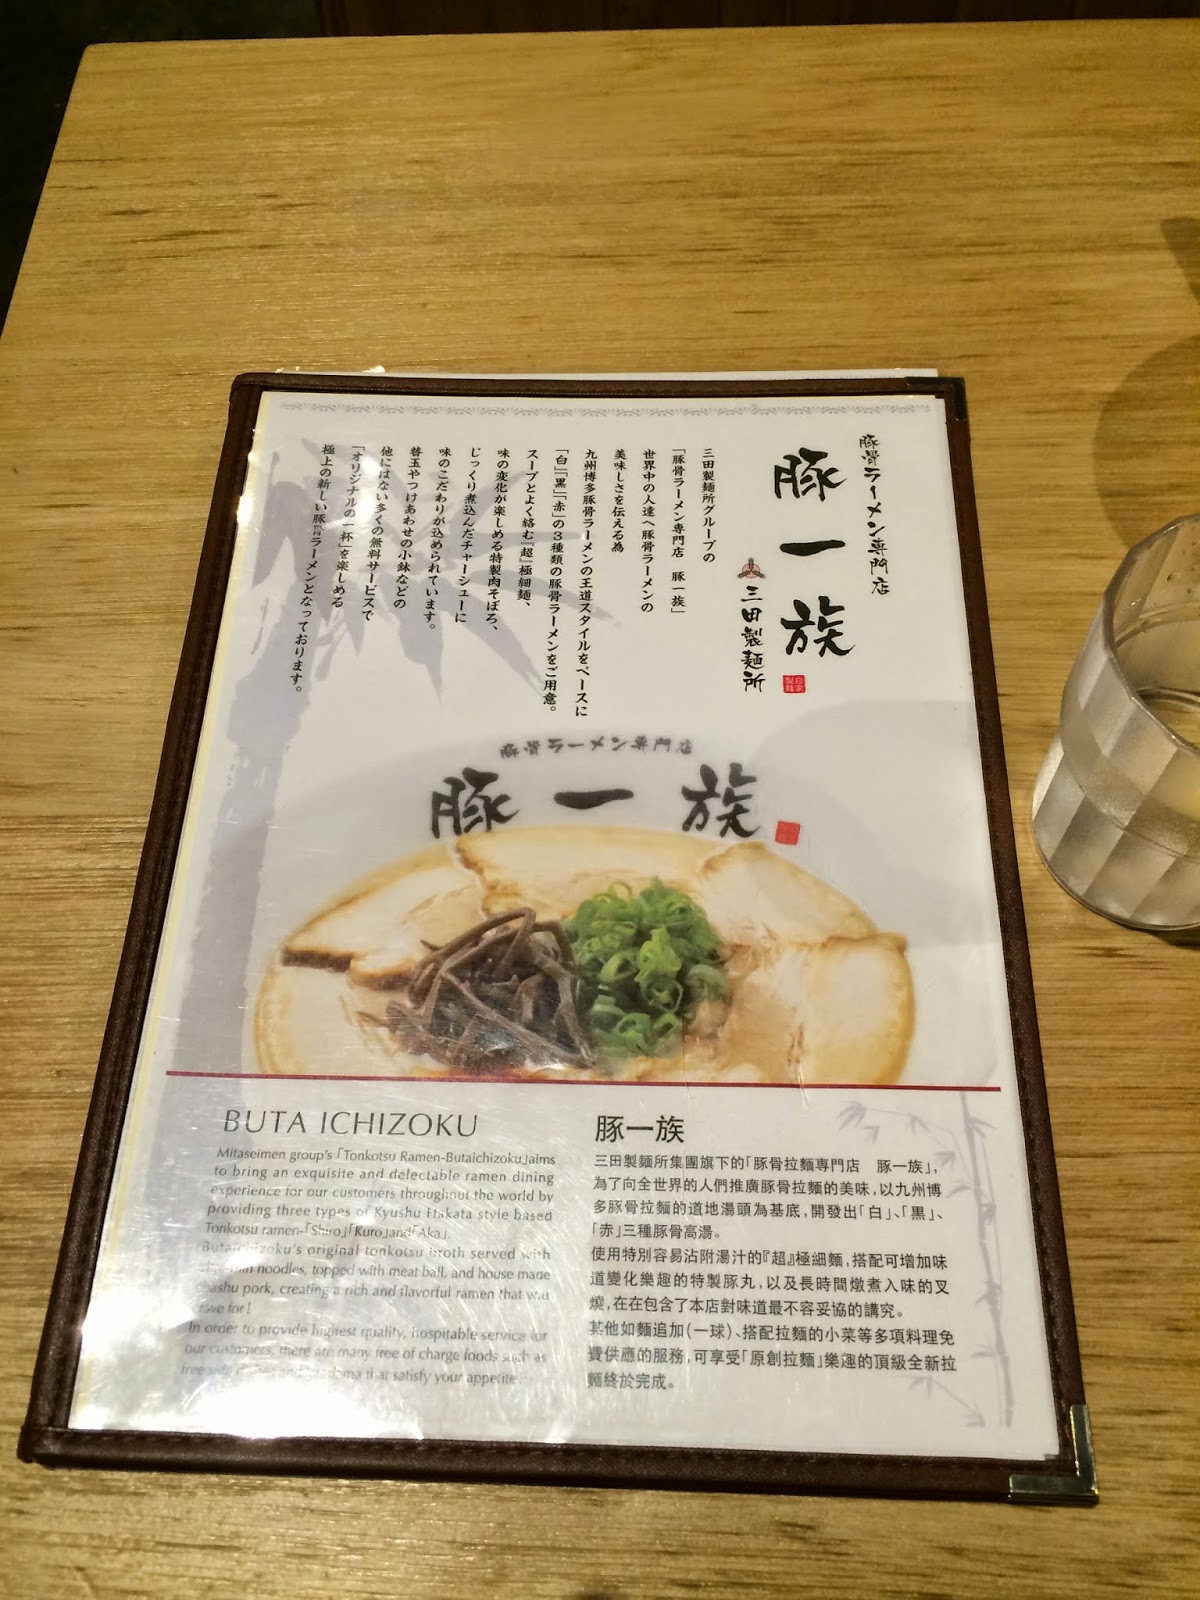 豚骨ラーメン専門店
豚一族
自家製麺
三田製麺所
三田製麺所グループの
「豚骨ラーメン専門店　豚一族」
世界中の人達へ豚骨ラーメンの
美味しさを伝える為
九州博多豚骨ラーメンの王道スタイルをベースに
「白」「黒」「赤」の３種類の豚骨ラーメンをご用意。
スープとよく絡む『超』極細麺、
味の変化が楽しめる特製肉そぼろ、
じっくり煮込んだチャーシューに
味のこだわりが込められています。
替玉やつけあわせの小鉢などの
他にはない多くの無料サービスで
「オリジナルの一杯」を楽しめる
極上の新しい豚ラーメンとなっております。
豚骨ラーメン専門店
豚一族
BUTA ICHIZOKU
Mitaseimen group's「Tonkotsu Ramen-Butaichizoku」aims
to bring an exquisite and delectable ramen dining
experience for our customers throughout the world by
providing three types of Kyushu Hakata style based
Tonkotsu ramen-「Shiro」「Kuro」and「Aka」.
Butaichizoku's original tonkotsu broth served with
noodles, topped with meat ball, and house made
chashu pork, creating a rich and flavorful ramen that you
crave for!
In order to provide highest quality, hospitable service for
our customers, there are many free of charge foods such as
free side and that satisfy your appetite.
豚一族
三田製麵所集團旗下的「豚骨拉麵專門店　豚一族」,
為了向全世界的人們推廣豚骨拉麵的美味,以九州博
多豚骨拉麵的道地湯頭為基底,開發出「白」、「黒」、
「赤」三種豚骨高湯。
使用特別容易沾附湯汁的『超』極細麵,搭配可增加味
道變化樂趣的特製豚丸,以及長時間燉煮入味的叉
燒,在在包含了本店對味道最不容妥協的講究。
其他如麵追加(一球)、搭配拉麵的小菜等多項料理免
費供應的服務,可享受「原創拉麵」樂趣的頂級全新拉
麵終於完成。